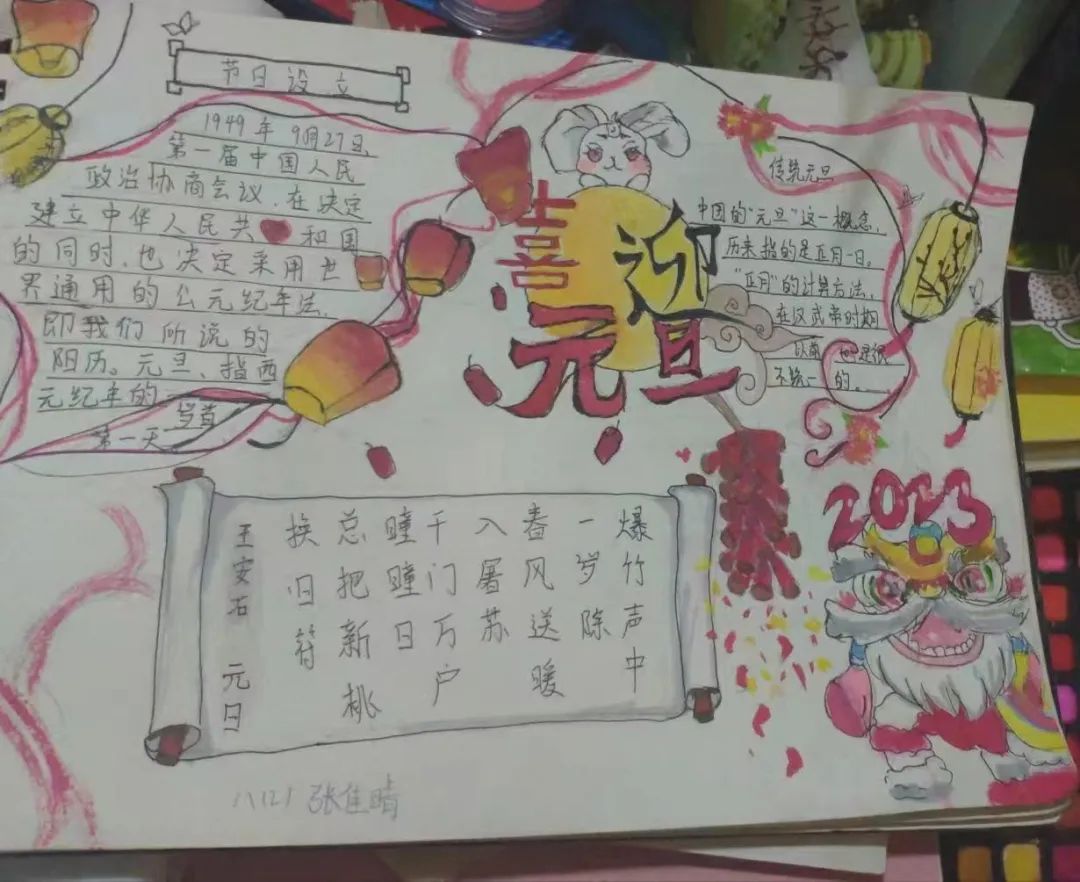 节日设立
1949年9月27日、
第一届中国人民
政治协商会议,在决定
建立中华人民共和国
的同时,也决定采用世
界通用的公元纪年法,
即我们所说的
阳历。元旦、指西
元纪年的
岁首
第一天
喜迎
元旦
传统元旦
中国的“元旦”这一概念,
历来指的是正月一日。
“正月”的计算方法,
在汉武帝时期
以前 是很
不统一的。
爆竹声中
一岁除
春风送暖
入屠苏
千门万户
瞳瞳日
总把新桃
换旧符
王安石 元日
2023
八(2) 张佳晴